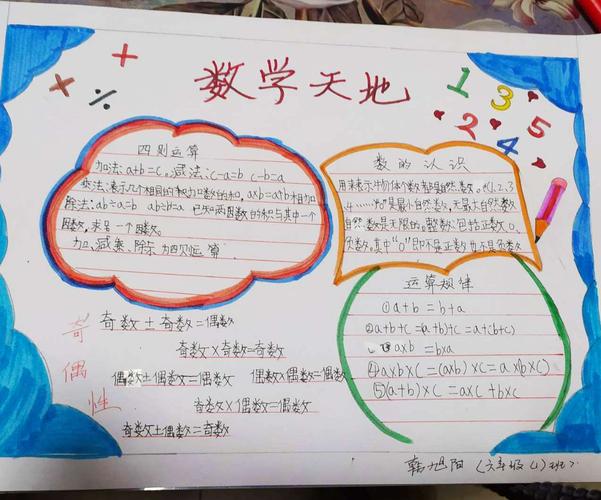 数学天地
+
×
÷
1 2 3 4 5
四则运算
加法:a+b=c。减法:c-a=b c-b=a
乘法:表示几个相同加数的和,axb=a个b相加
除法:ab÷a=b ab÷b=a 已知两因数的积与其中一个
因数,求另一个因数。
加、减、乘、除
运算
数的认识
用来表示
物体个数
是自然数。
1.2.3
是最小自然数,无最大自然数
自然数是无限的。整数包括正数、0、
负数,其中"0"即不是正数也不是负数
运算规律
①a+b=b+a
②a+b+c=(a+b)+c=a+(b+c)
axb=bxa
④axbxc=(axb)xc=ax(bxc)
⑤(a+b)xc=axc+bxc
奇偶性
奇数±奇数=偶数
奇数×奇数=奇数
偶数±偶数=偶数 偶数×偶数=偶数
奇数×偶数=偶数
奇数±偶数=奇数
韩旭阳(六年级(1)班)